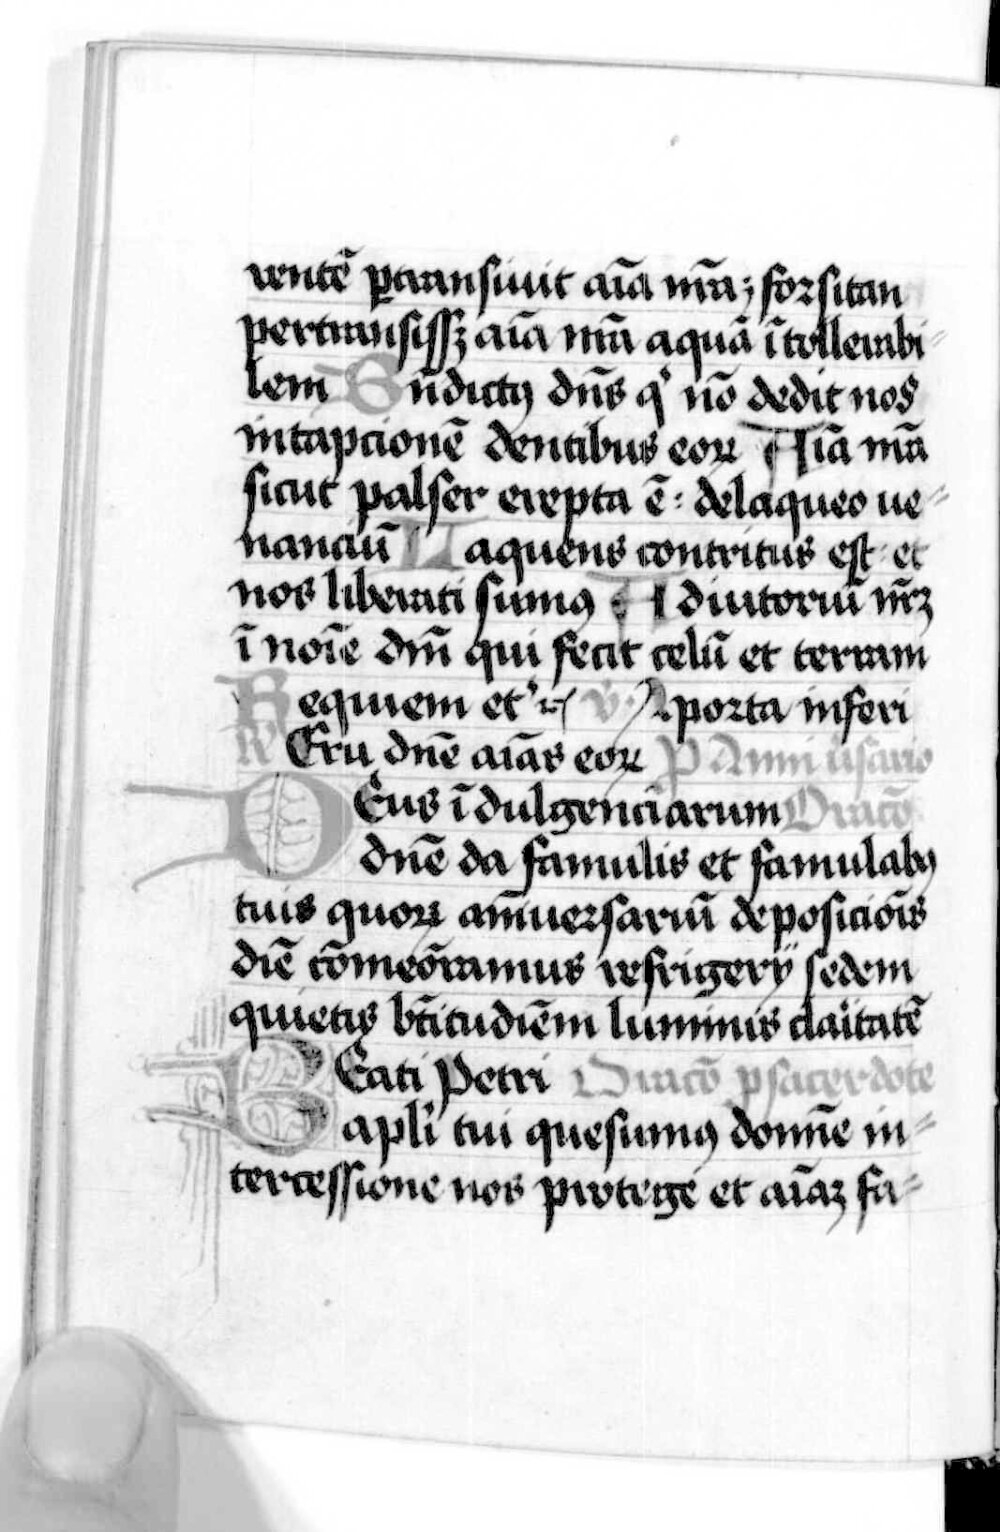 rentē ꝑtransiuit aīa nr̄a; forsitan
pertransissꝫ aīa nr̄a aquā ītollerabi
lem Bn̄dictꝰ dn̄s qͥ nō dedit nos
in tapcionē dentibus eoꝝ Aīa nr̄a
sicut passer erepta ē: de laqueo ue
nanciū Laqueus contritus est: et
nos liberati sumꝰ Adiutoriū nr̄ꝫ
ī noīe dn̄i qui fecit celū et terram
Requiem et̾ v̄ A porta inferi
R̄ Eru dn̄e aīas eoꝝ P Anniu̾sario
Deus īdulgenciarum Oracō
dn̄e da famulis et famulabꝰ
tuis quoꝝ anniuersariū deposiciōis
diē cōmeōramus refrigerij sedem
quietis bt̄itudiēm luminis claritatē
Beati Petri Oracō ꝓ sacerdote
apli tui quesumꝰ domn̄e in
tercessione nos protege et aīaꝫ fa